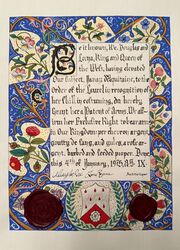 Be it known, We, Douglas and
Leeya, King and Queen of
the West, having elevated
Our subject, Aquitaine, to the
Order of the Laurel in recognition of
her skill in costuming, do hereby
Grant her a Patent of Arms. We af-
firm her Exclusive Right to bear arms
in Our Kingdom: per chevron argent,
goutty de sang, and gules, a rose ar-
gent, barbed and seeded proper. Done
this 4th of January, 1975, A.S. IX.